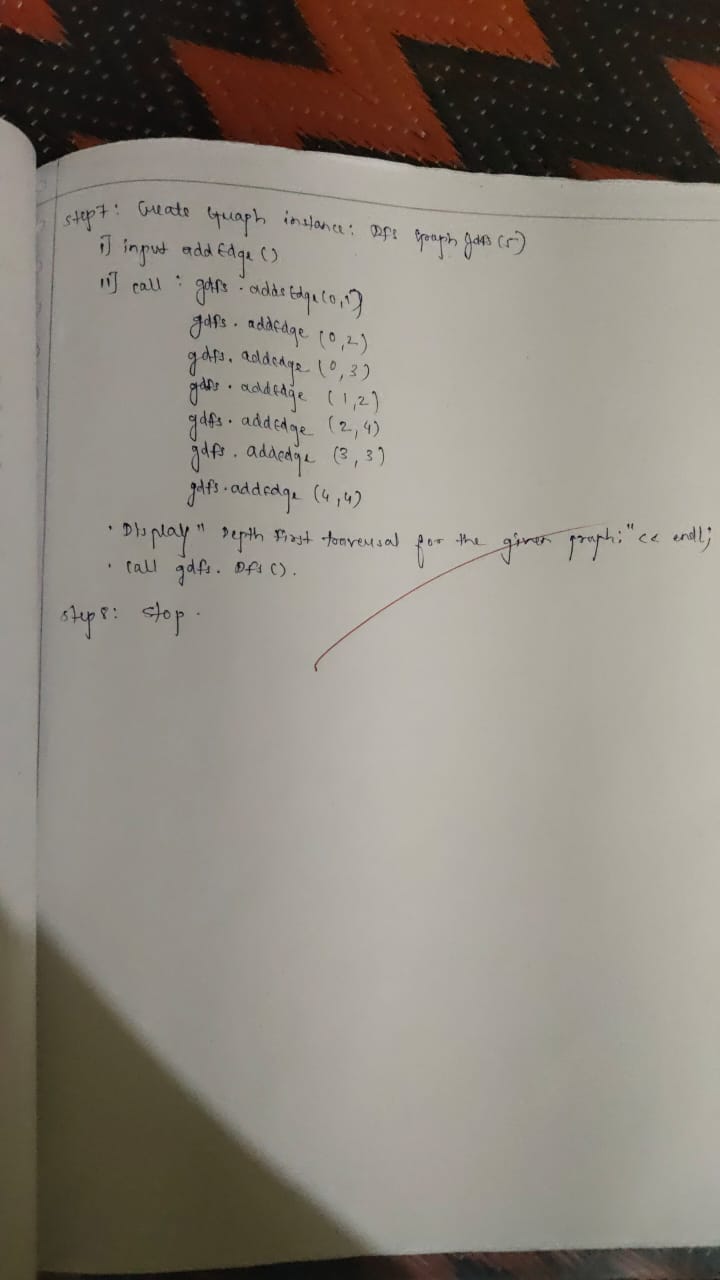 step7: Create Graph instance: Dfs Graph gdfs (5)
i] input add Edge ()
ii] call : gdfs . adds Edge (0,1)
gdfs . addedge (0,2)
gdfs. addedge (0,3)
gdfs . addedge (1,2)
gdfs. addedge (2,4)
gdfs . addedge (3,3)
gdfs.addedge (4,4)
· Display " Depth First traversal for the given graph:" << endl;
· call gdfs. Dfs ().
step 8: stop .